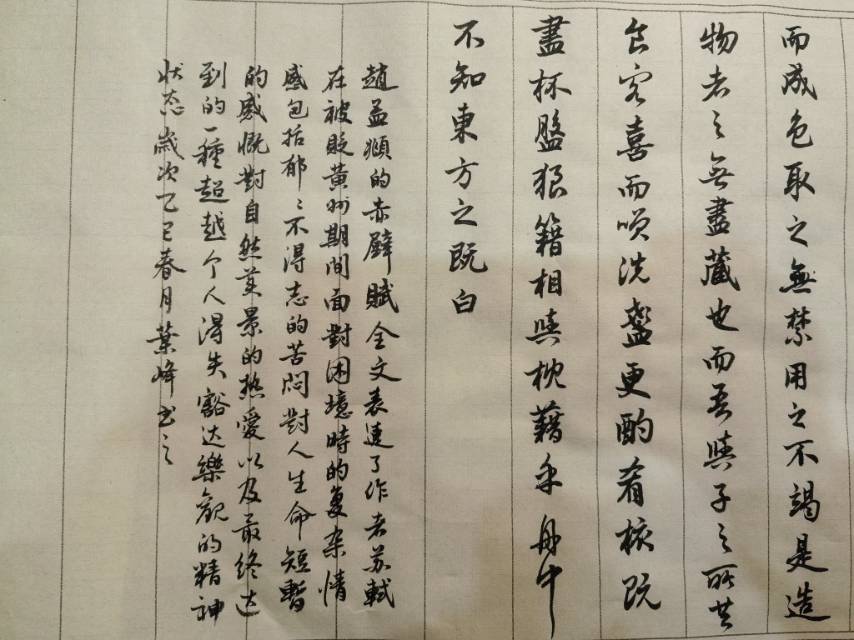 而成色取之無禁用之不竭是造
物者之無盡藏也而吾與子之所共
食客喜而咲洗盞更酌肴核既
盡杯盤狼籍相與枕藉乎舟中
不知東方之既白
趙孟頫的赤壁賦全文表達了作者苏軾
在被貶黄州期间面對困境時的复杂情
感包括郁〻不得志的苦悶對人生命短暫
的感慨對自然美景的热愛以及最终达
到的一種超越个人得失豁达樂观的精神
状态歲次乙巳春月葉峰书之